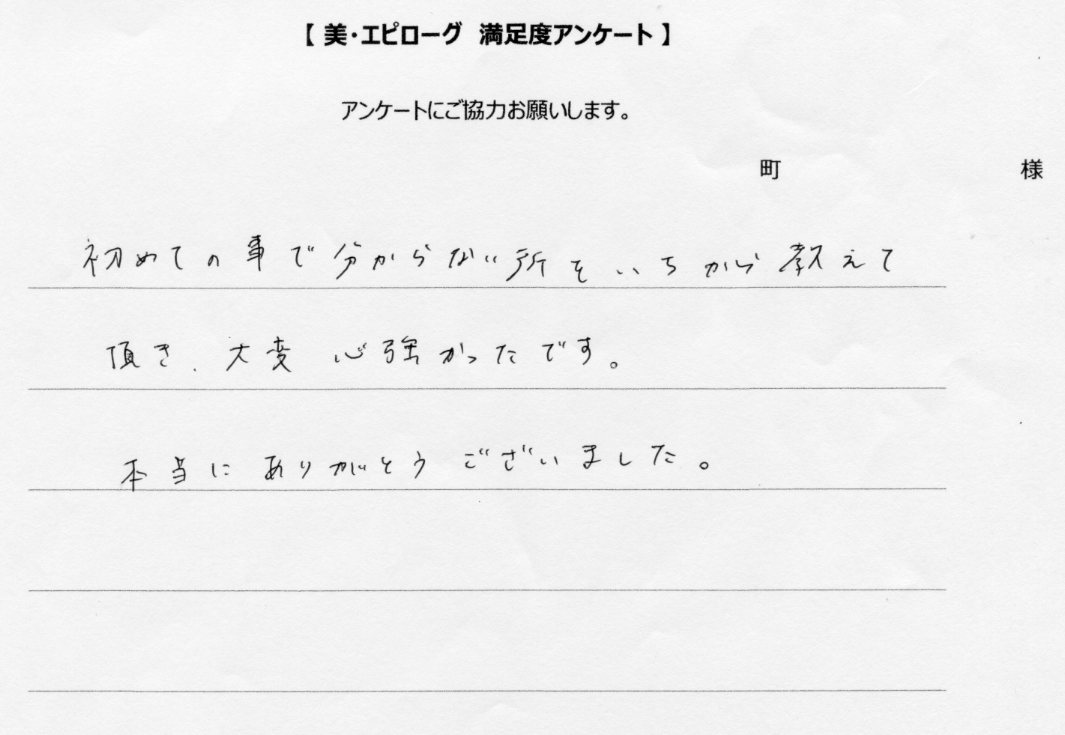 【 美・エピローグ 満足度アンケート 】
アンケートにご協力お願いします。
町 様
初めての事で分からない所をいちから教えて
頂き、大変心強かったです。
本当にありがとうございました。